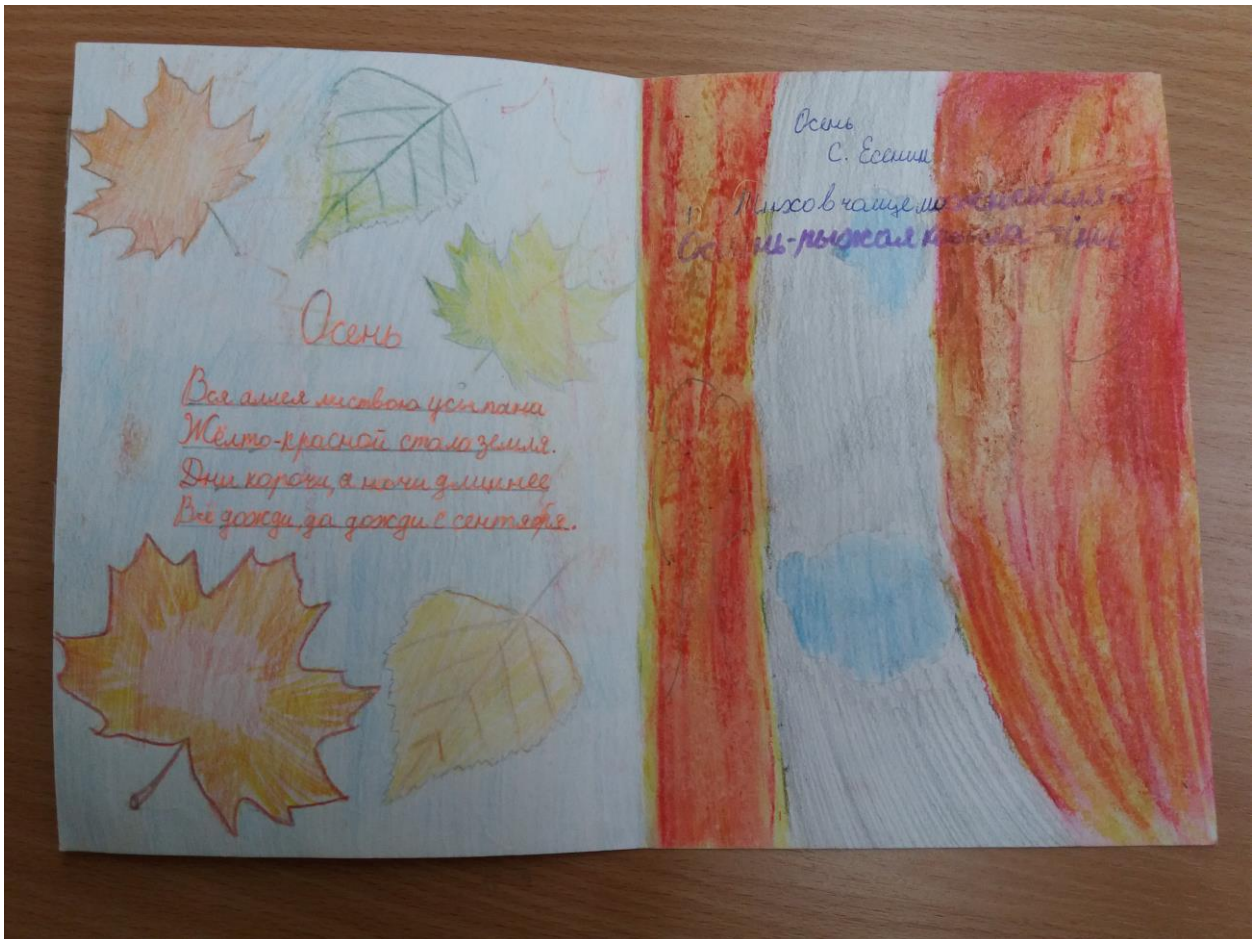 Осень
Вся аллея листвою усыпана
Жёлто-красной стала земля.
Дни корочи, а ночи длиннее
Всё дожди да дожди с сентября.
Осень
С. Есенин
Тихо в чаще
-рыжая